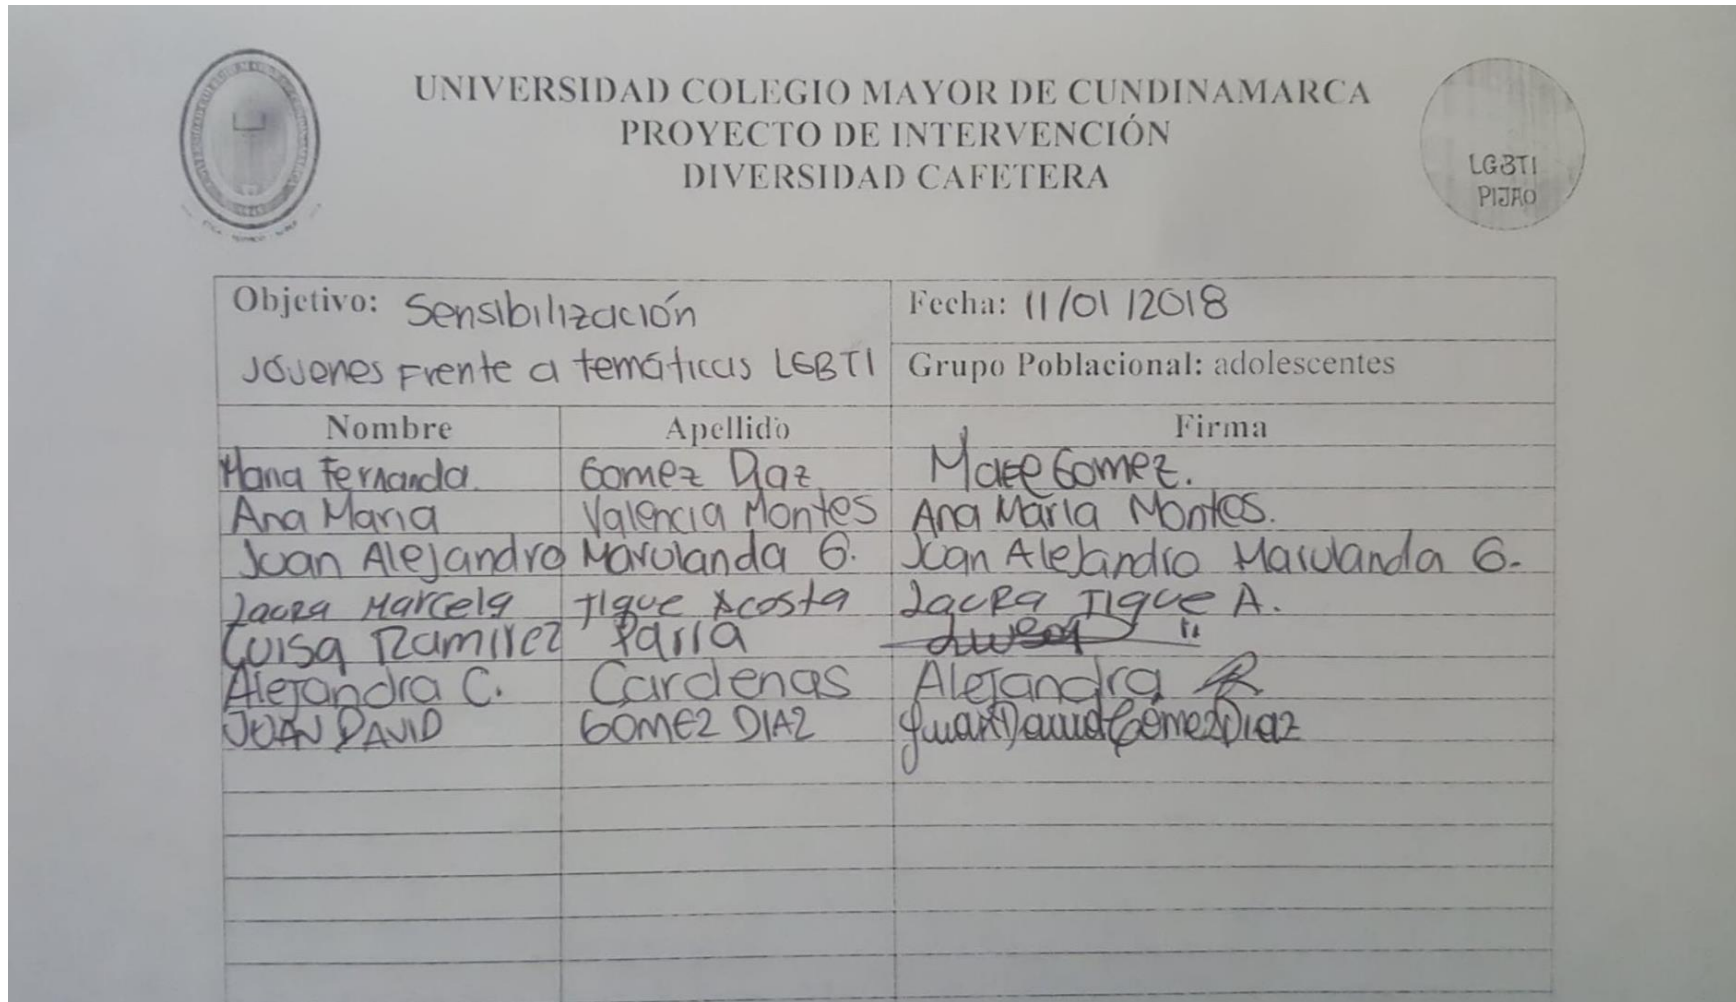 UNIVERSIDAD COLEGIO MAYOR DE CUNDINAMARCA
PROYECTO DE INTERVENCIÓN
DIVERSIDAD CAFETERA
LGBTI
PIJAO
Objetivo: Sensibilización
Jóvenes Frente a temáticas LGBTI
Fecha: 11/01/2018
Grupo Poblacional: adolescentes
Nombre Apellido Firma
Maria Fernanda. Gomez Diaz Mafe Gomez.
Ana Maria Valencia Montes Ana María Montes.
Juan Alejandro Marulanda G. Juan Alejandro Marulanda G.
Laura Marcela Tique Acosta Laura Tique A.
Luisa Ramirez Parra
Alejandra C. Cardenas Alejandra
JUAN DAVID GOMEZ DIAZ Juan David Gómez Diaz